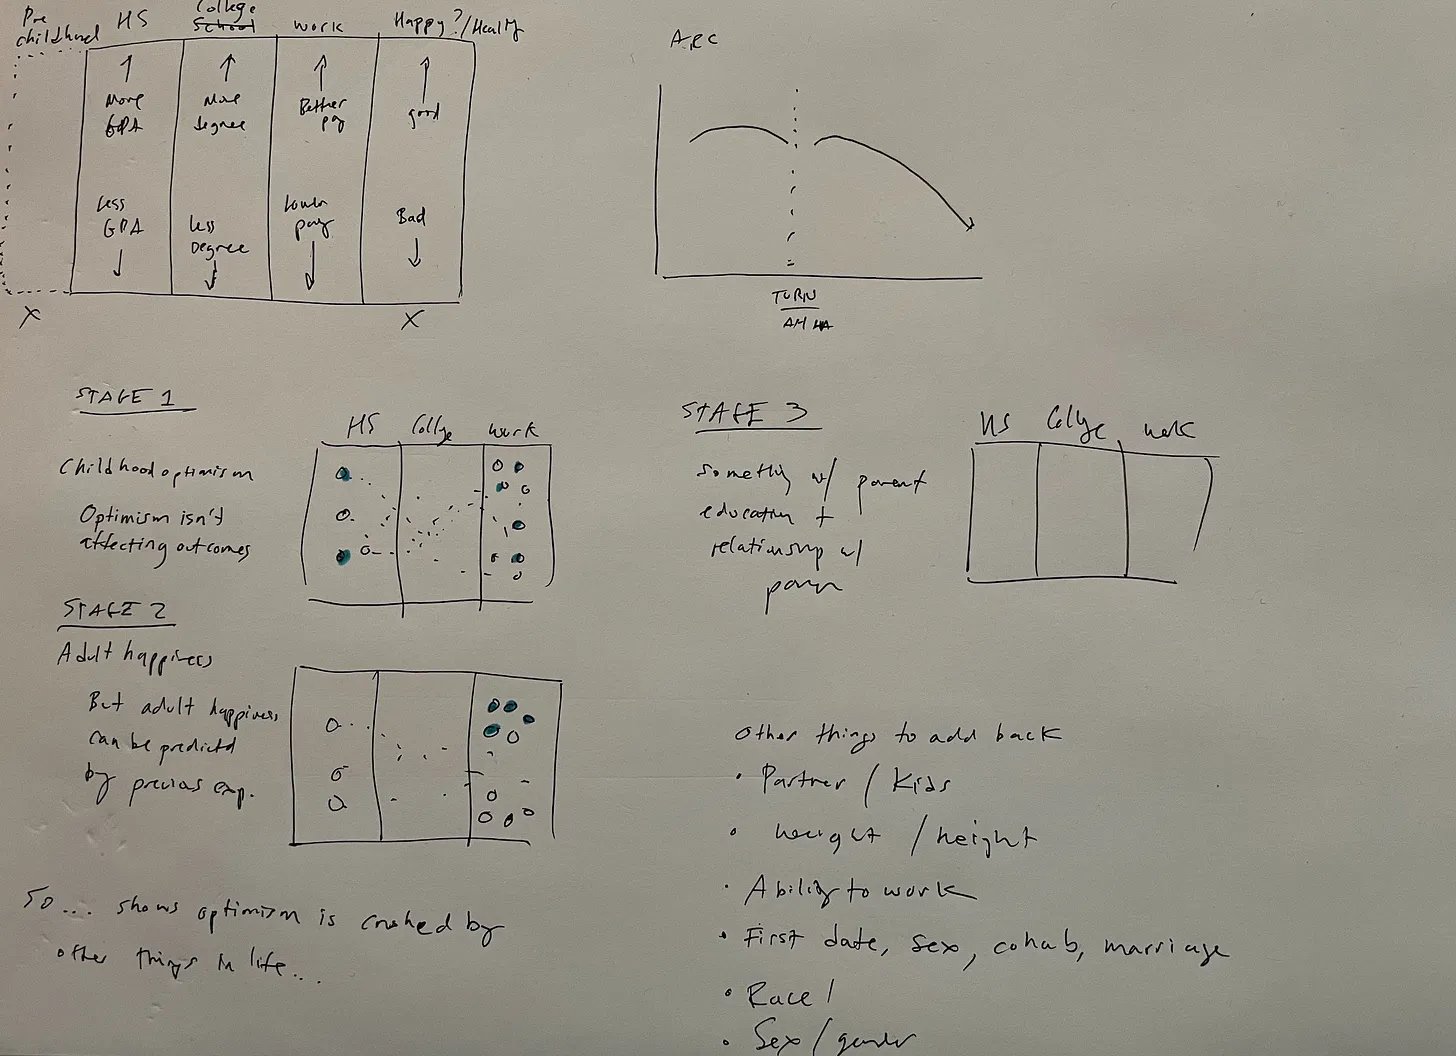 Pre
childhood
HS
College
School
work
Happy?/Healthy
More
GPA
More
degree
Better
pay
good
Less
GPA
Less
Degree
Lower
pay
Bad
X
X
ARC
TURN
AH HA
STAGE 1
Childhood optimism
Optimism isn't
affecting outcomes
HS
College
work
STAGE 2
Adult happiness
But adult happiness
can be predictd
by previous exp.
So... shows optimism is crushed by
other things in life...
STAGE 3
Something w/ parent
education +
relationship w/
HS
College
work
Other things to add back
• Partner / Kids
• weight / height
• Ability to work
• First date, sex, cohab, marriage
• Race
• Sex / gender